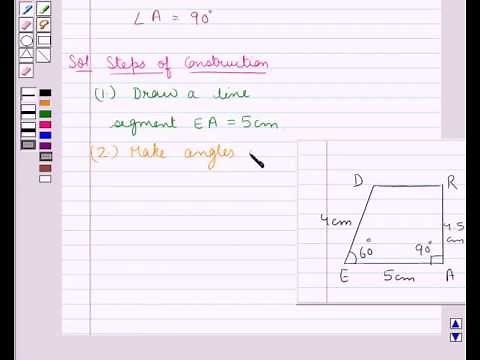 ∠A = 90°
Sol Steps of Construction
(1.) Draw a line
segment EA = 5cm
(2.) Make angles
D R
4cm
4.5
cm
60° 90°
E 5cm A